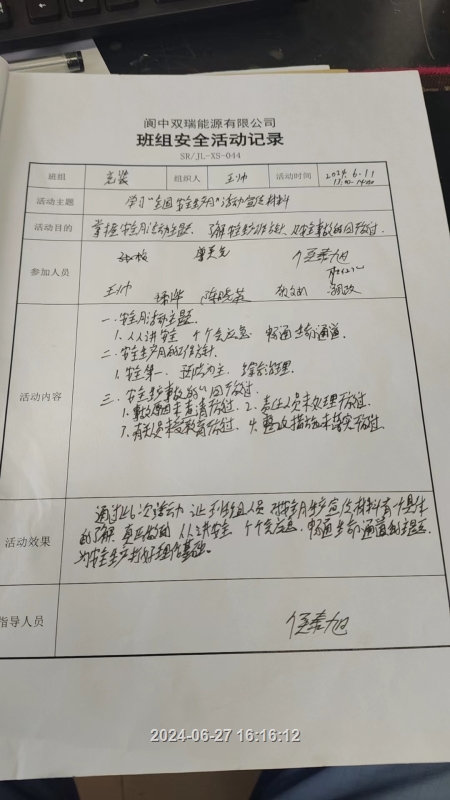 阆中双瑞能源有限公司
班组安全活动记录
SR/JL-XS-044
班组 充装 组织人 王帅 活动时间 2024.6.11
活动主题 学习“全国安全生产月”活动宣传材料
活动目的 掌握安全月活动主题、了解安全生产工作方针、及安全事故的四不放过.
参加人员
王帅 陈晓英
活动内容
一.安全月活动主题.
1.人人讲安全 个个会应急 畅通生命通道
二.安全生产月的工作方针.
1.安全第一、预防为主、综合治理.
三.安全生产事故的“四不放过.
1.事故原因未查清不放过. 2.责任人员未处理不放过.
3.有关人员未受教育不放过. 4.整改措施未落实不放过.
活动效果
通过此次活动 让到班组人员 对安全月生产宣传材料有个具体
的了解 真正做到 人人讲安全 个个会应急 畅通生命通道的主题.
为安全生产打好理论基础.
指导人员
2024-06-27 16:16:12